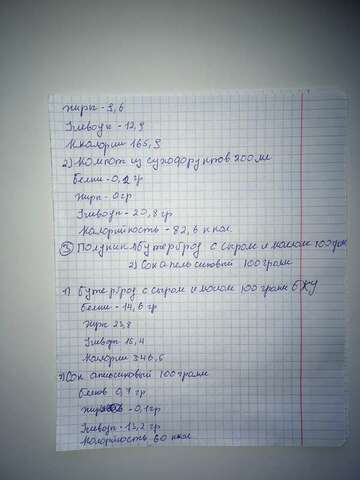 Жиры - 9,6
Углеводы - 12,9
Ккалории 165,9
2) Компот из сухофруктов 200 мл
Белки - 0,2 гр
Жиры - 0 гр
Углеводы - 20,8 гр
Калорийность - 82,6 ккал
③ Полдник 1) бутерброд с сыром и маслом 100 грам
2) Сок апельсиновый 100 грамм
1) бутерброд с сыром и маслом 100 грамм БЖУ
Белки - 14,6 гр
Жиры 23,8
Углеводы 15,4
Калории 346,6
2) Сок апельсиновый 100 грамм
Белков 0,7 гр
Жиров - 0,1 гр
Углеводы - 13,2 гр
Калорийность 60 ккал